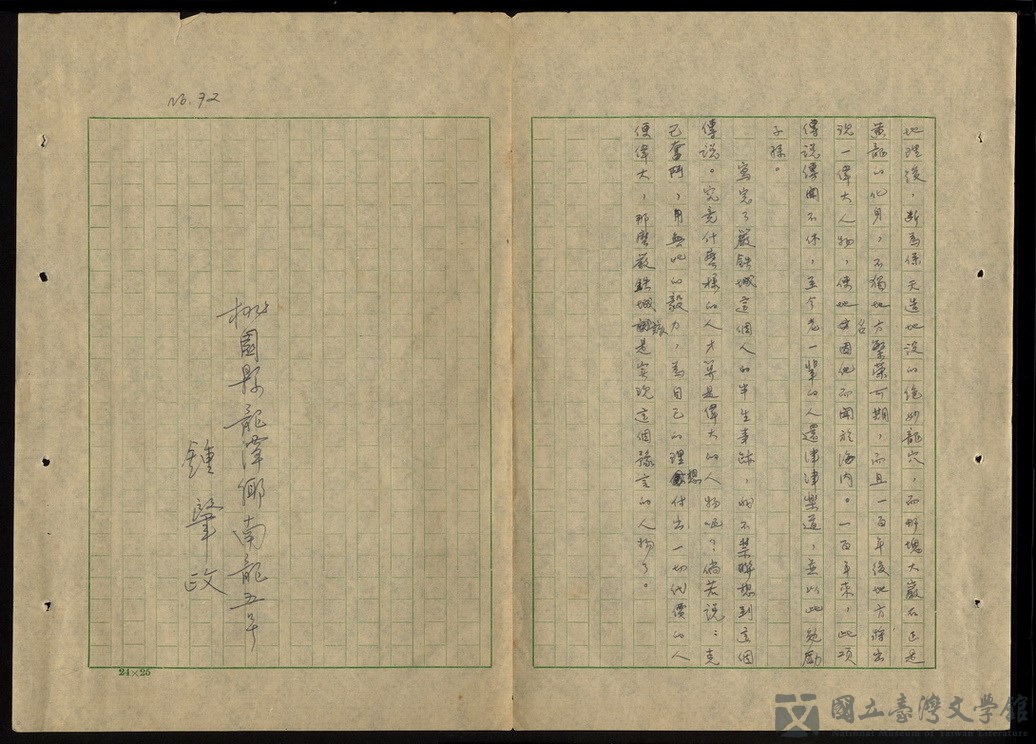 地理後，斷為係天造地設的絕妙龍穴，而那塊大巖石正是
黃龍的化身，不獨地方繁榮可期，而且一百年後地方將出
現一偉大人物，使地名因他而聞於海內。一百年來，此項
傳說傳開不休，至今老一輩的人還津津樂道，並以此勉勵
子孫。
寫完了嚴鉄城這個人的半生事跡，我不禁聯想到這個
傳說。究竟什麼樣的人才算是偉大的人物呢？倘若說：克
己奮鬥，用無比的毅力，為自己的理想付出一切代價的人
便偉大，那麼嚴鉄城該是實現這個豫言的人物了。
No. 72
桃園縣龍潭鄉南龍五号
鍾肇政
24×25
國立臺灣文學館
National Museum of Taiwan Literature